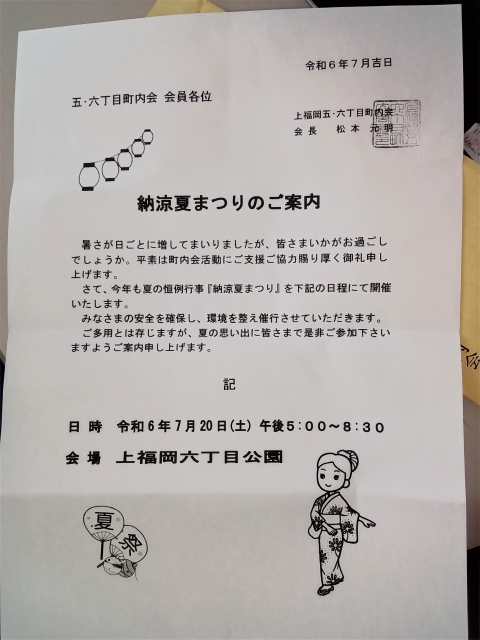 令和6年7月吉日
五・六丁目町内会 会員各位
上福岡五・六丁目町内会
会長 松本元明
納涼夏まつりのご案内
暑さが日ごとに増してまいりましたが、皆さまいかがお過ごし
でしょうか。平素は町内会活動にご支援ご協力賜り厚く御礼申し
上げます。
さて、今年も夏の恒例行事『納涼夏まつり』を下記の日程にて開催
いたします。
みなさまの安全を確保し、環境を整え催行させていただきます。
ご多用とは存じますが、夏の思い出に皆さまで是非ご参加下さい
ますようご案内申し上げます。
記
日時 令和6年7月20日(土) 午後5:00～8:30
会場 上福岡六丁目公園
夏
祭